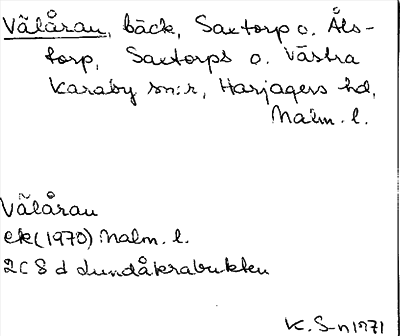 Välåran, bäck, Saxtorp o. Åls-
torp, Saxtorps o. Västra
Karaby sn:r, Harjagers hd,
Malm. l.
Välåran
ek (1970) Malm. l.
2C 8 d Lundåkrabukten
K. S-n 1971